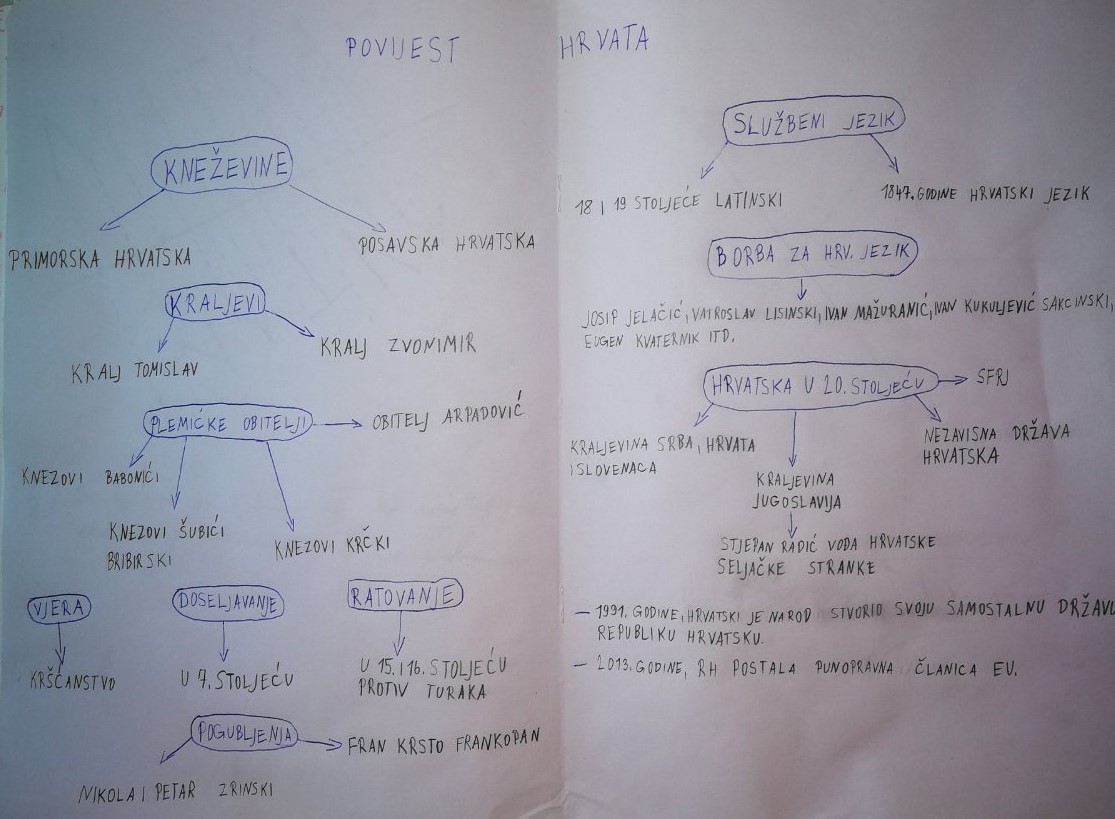 POVIJEST HRVATA
KNEŽEVINE
PRIMORSKA HRVATSKA
POSAVSKA HRVATSKA
KRALJEVI
KRALJ TOMISLAV
KRALJ ZVONIMIR
PLEMIĆKE OBITELJI
OBITELJ ARPADOVIĆ
KNEZOVI BABONIĆI
KNEZOVI ŠUBIĆI
BRIBIRSKI
KNEZOVI KRČKI
VJERA
KRŠĆANSTVO
DOSELJAVANJE
U 7. STOLJEĆU
RATOVANJE
U 15. I 16. STOLJEĆU
PROTIV TURAKA
POGUBLJENJA
NIKOLA I PETAR ZRINSKI
FRAN KRSTO FRANKOPAN
SLUŽBENI JEZIK
18 I 19 STOLJEĆE LATINSKI
1847. GODINE HRVATSKI JEZIK
BORBA ZA HRV. JEZIK
JOSIP JELAČIĆ, VATROSLAV LISINSKI, IVAN MAŽURANIĆ, IVAN KUKULJEVIĆ SAKCINSKI,
EUGEN KVATERNIK ITD.
HRVATSKA U 20. STOLJEĆU
SFRJ
KRALJEVINA SRBA, HRVATA
I SLOVENACA
KRALJEVINA
JUGOSLAVIJA
STJEPAN RADIĆ VOĐA HRVATSKE
SELJAČKE STRANKE
NEZAVISNA DRŽAVA
HRVATSKA
– 1991. GODINE, HRVATSKI JE NAROD STVORIO SVOJU SAMOSTALNU DRŽAVU
REPUBLIKU HRVATSKU.
– 2013. GODINE, RH POSTALA PUNOPRAVNA ČLANICA EU.